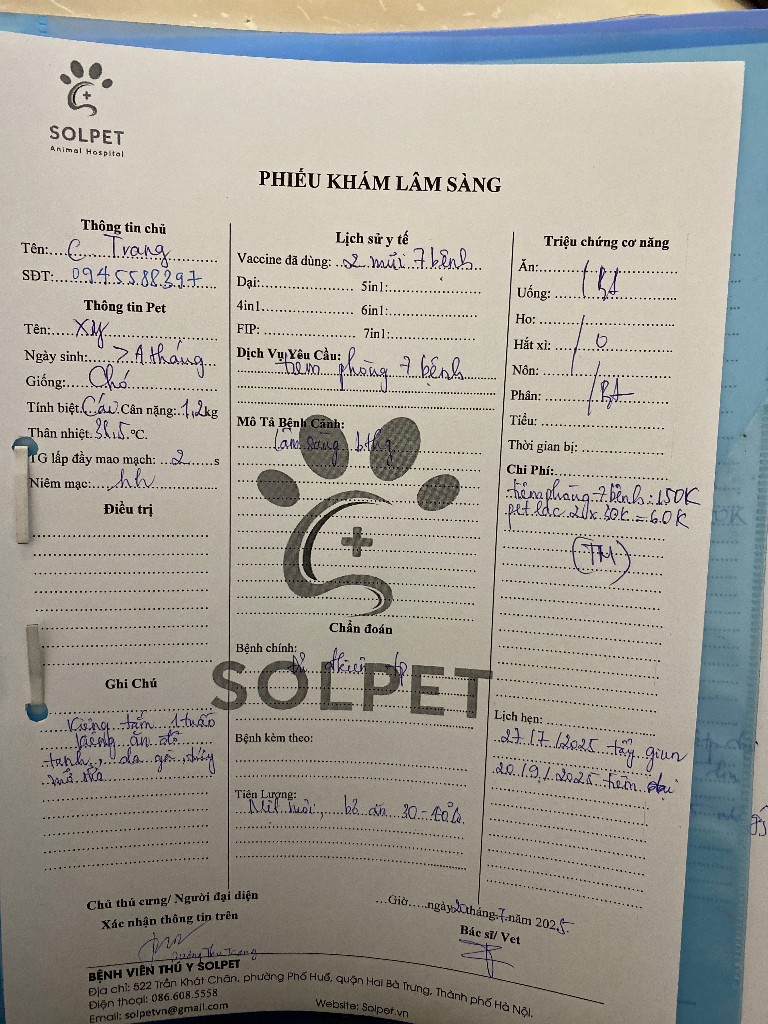 SOLPET
Animal Hospital
PHIẾU KHÁM LÂM SÀNG
Thông tin chủ
Tên: C Trang
SĐT: 0945588397
Thông tin Pet
Tên: Xy
Ngày sinh: > 1 tháng
Giống: Chó
Tính biệt: Cái Cân nặng: 1,2kg
Thân nhiệt: 38,5 °C.
TG lấp đầy mao mạch: 2 s
Niêm mạc: hh
Điều trị
Ghi Chú
Kiêng tắm 1 tuần
kiêng ăn đồ
tanh, da gà,
Lịch sử y tế
Vaccine đã dùng: 2 mũi 7 bệnh
Dại: 5in1:
4in1 6in1:
FIP: 7in1:
Dịch Vụ Yêu Cầu:
tiêm phòng 7 bệnh
Mô Tả Bệnh Cảnh:
lâm sàng bthg
Chẩn đoán
Bệnh chính:
SOLPET
Bệnh kèm theo:
Tiên Lượng:
Mệt mỏi, bỏ ăn 30-40%
Triệu chứng cơ năng
Ăn:
Uống: BT
Ho:
Hắt xì: 0
Nôn:
Phân: BT
Tiểu:
Thời gian bị:
Chi Phí:
tiêm phòng 7 bệnh: 150K
pet lac 2 x 30K = 60K
(TM)
Lịch hẹn:
27/7/2025 tẩy giun
20/9/2025 tiêm dại
Chủ thú cưng/ Người đại diện
Xác nhận thông tin trên
Dương Thu Trang
...Giờ.....ngày 20 tháng 7 năm 2025.
Bác sĩ/ Vet
BỆNH VIỆN THÚ Y SOLPET
Địa chỉ: 522 Trần Khát Chân, phường Phố Huế, quận Hai Bà Trưng, Thành phố Hà Nội.
Điện thoại: 086.608.5558
Email: solpetvn@gmail.com Website: Solpet.vn